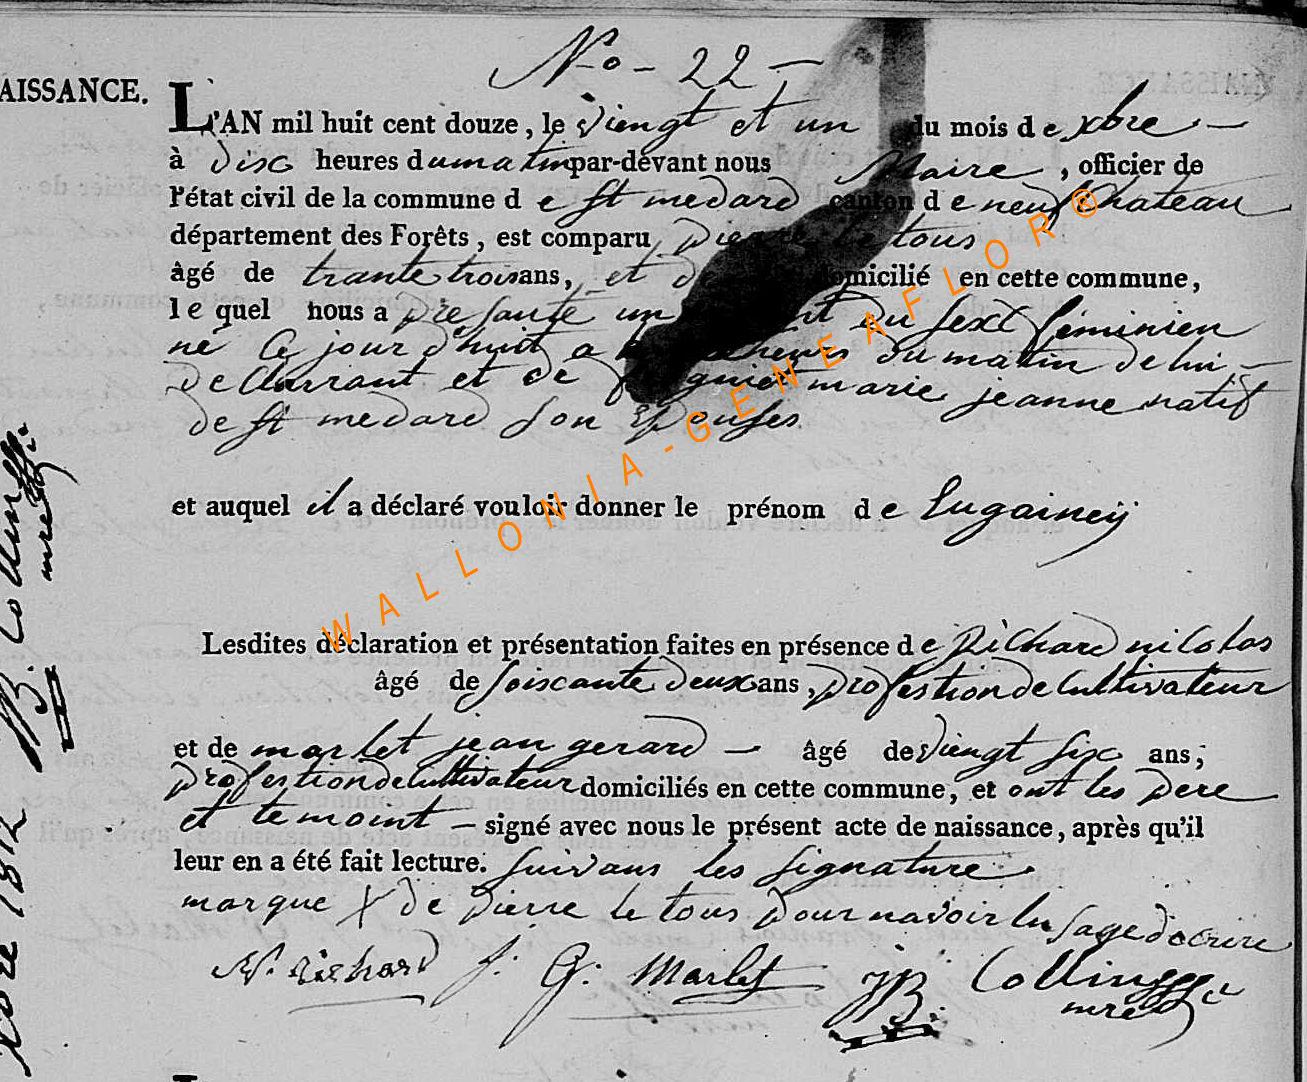 No - 22 -
AISSANCE.
L'AN mil huit cent douze, le viengt et un du mois d e xbre -
à disc heures du matin par-devant nous Maire, officier de
l'état civil de la commune d e st medard canton d e neufchateau
département des Forêts, est comparu Pierre le tous
âgé de trante trois ans, et domicilié en cette commune,
le quel nous a presanté un du sext féminien
né ce jour d'huit a heures du matin de lui -
declarrant et de marie jeanne natif
de st medard son epouses
et auquel il a déclaré vouloir donner le prénom d e Lugainey
Lesdites déclaration et présentation faites en présence d e Richard nicolas
âgé de soiscante deux ans, profestion de Cultivateur
et de marlet jean gerard - âgé de viengt six ans;
profestion de cultivateur domiciliés en cette commune, et ont les pere
et temoint - signé avec nous le présent acte de naissance, après qu'il
leur en a été fait lecture. suivans les signature
marque X de pierre le tous pour navoir lusage decrire
N. Richard J. G. Marlet JB. Colling
mre
WALLONIA-GENEAFLOR®